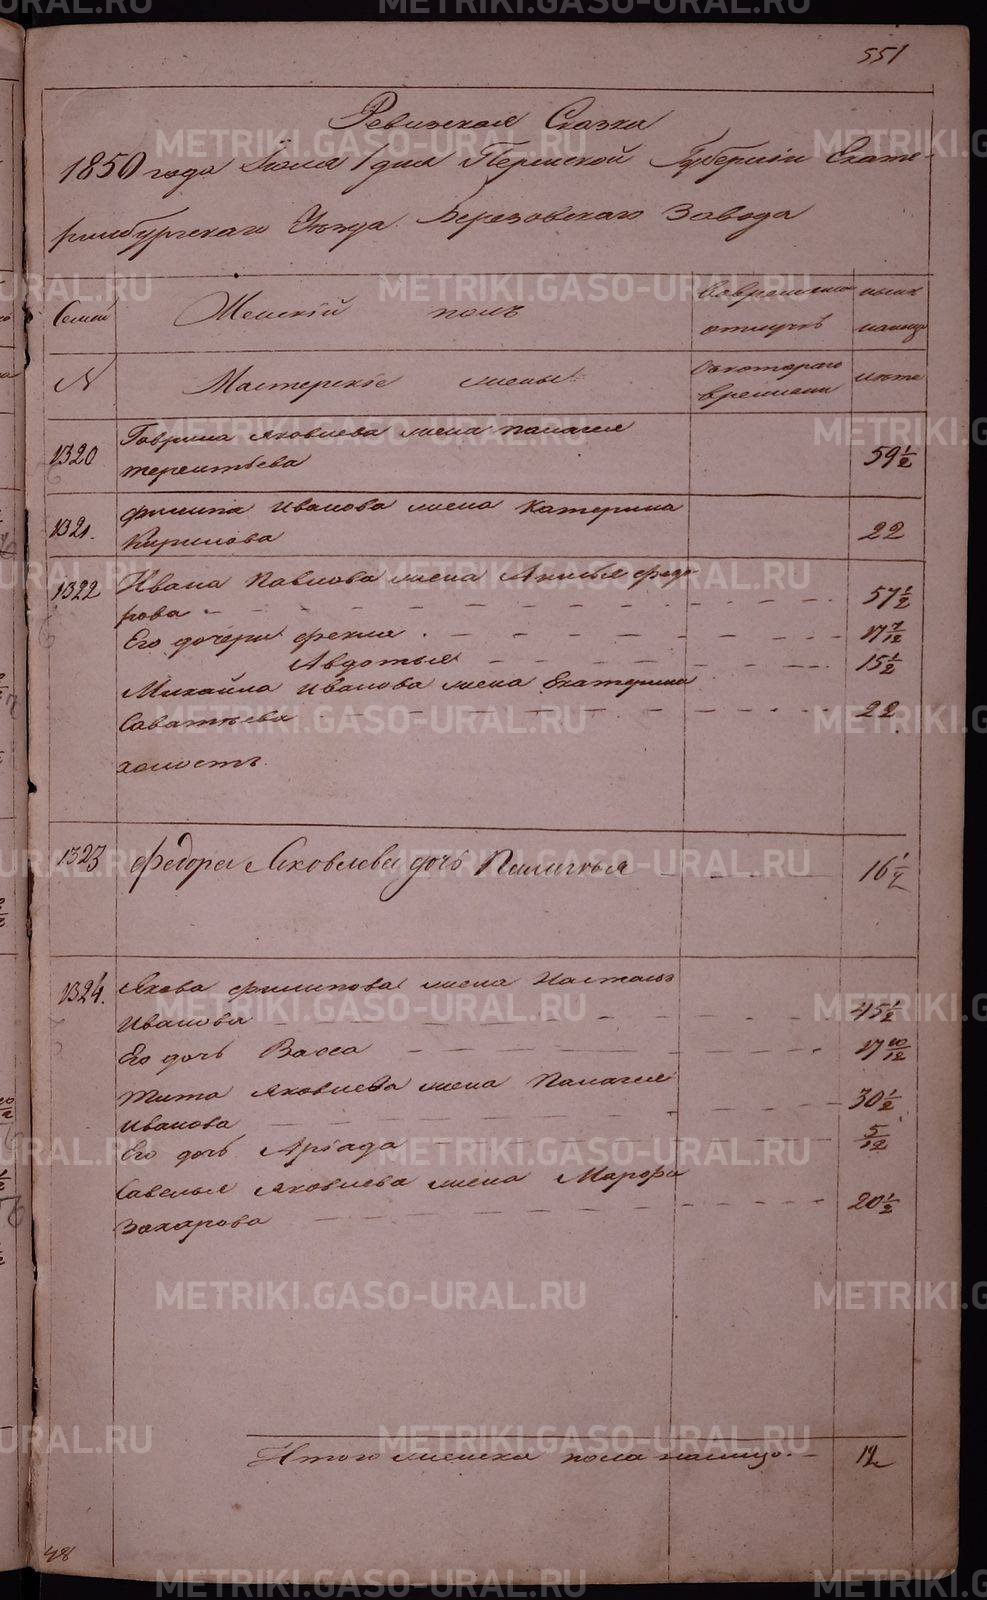 551
Ревизская Сказка
1850 года Июля 1 дня Пермской Губернiи Екате-
ринбургскаго Уѣзда Березовскаго Завода
Семьи Женскiй полъ Во временной отлучкѣ
№ Мастерскiе жены Съ котораго времени лѣта
1320 Гаврила Яковлева жена Палагея
Терентьева 59 1/2
1321. Филипа Иванова жена Катерина
Кирилова 22
1322 Ивана Павлова жена Афимья Федо
рова 57 1/2
Его дочери Фекла 17 7/12
Авдотья 15 1/2
Михайла Иванова жена Екатерина
Саватѣева 22
холостъ.
1323 Федора Яковлева дочь Палагея 16 1/2
1324. Якова Филипова жена Настасья
Иванова 45 1/2
Его дочь Васса 17 10/12
Тита Яковлева жена Палагея
Иванова 30 1/2
Его дочь Арiада 5/12
Савелья Яковлева жена Марфа
Захарова 20 1/2
Итого женска пола налицо. 12
48
METRIKI.GASO-URAL.RU